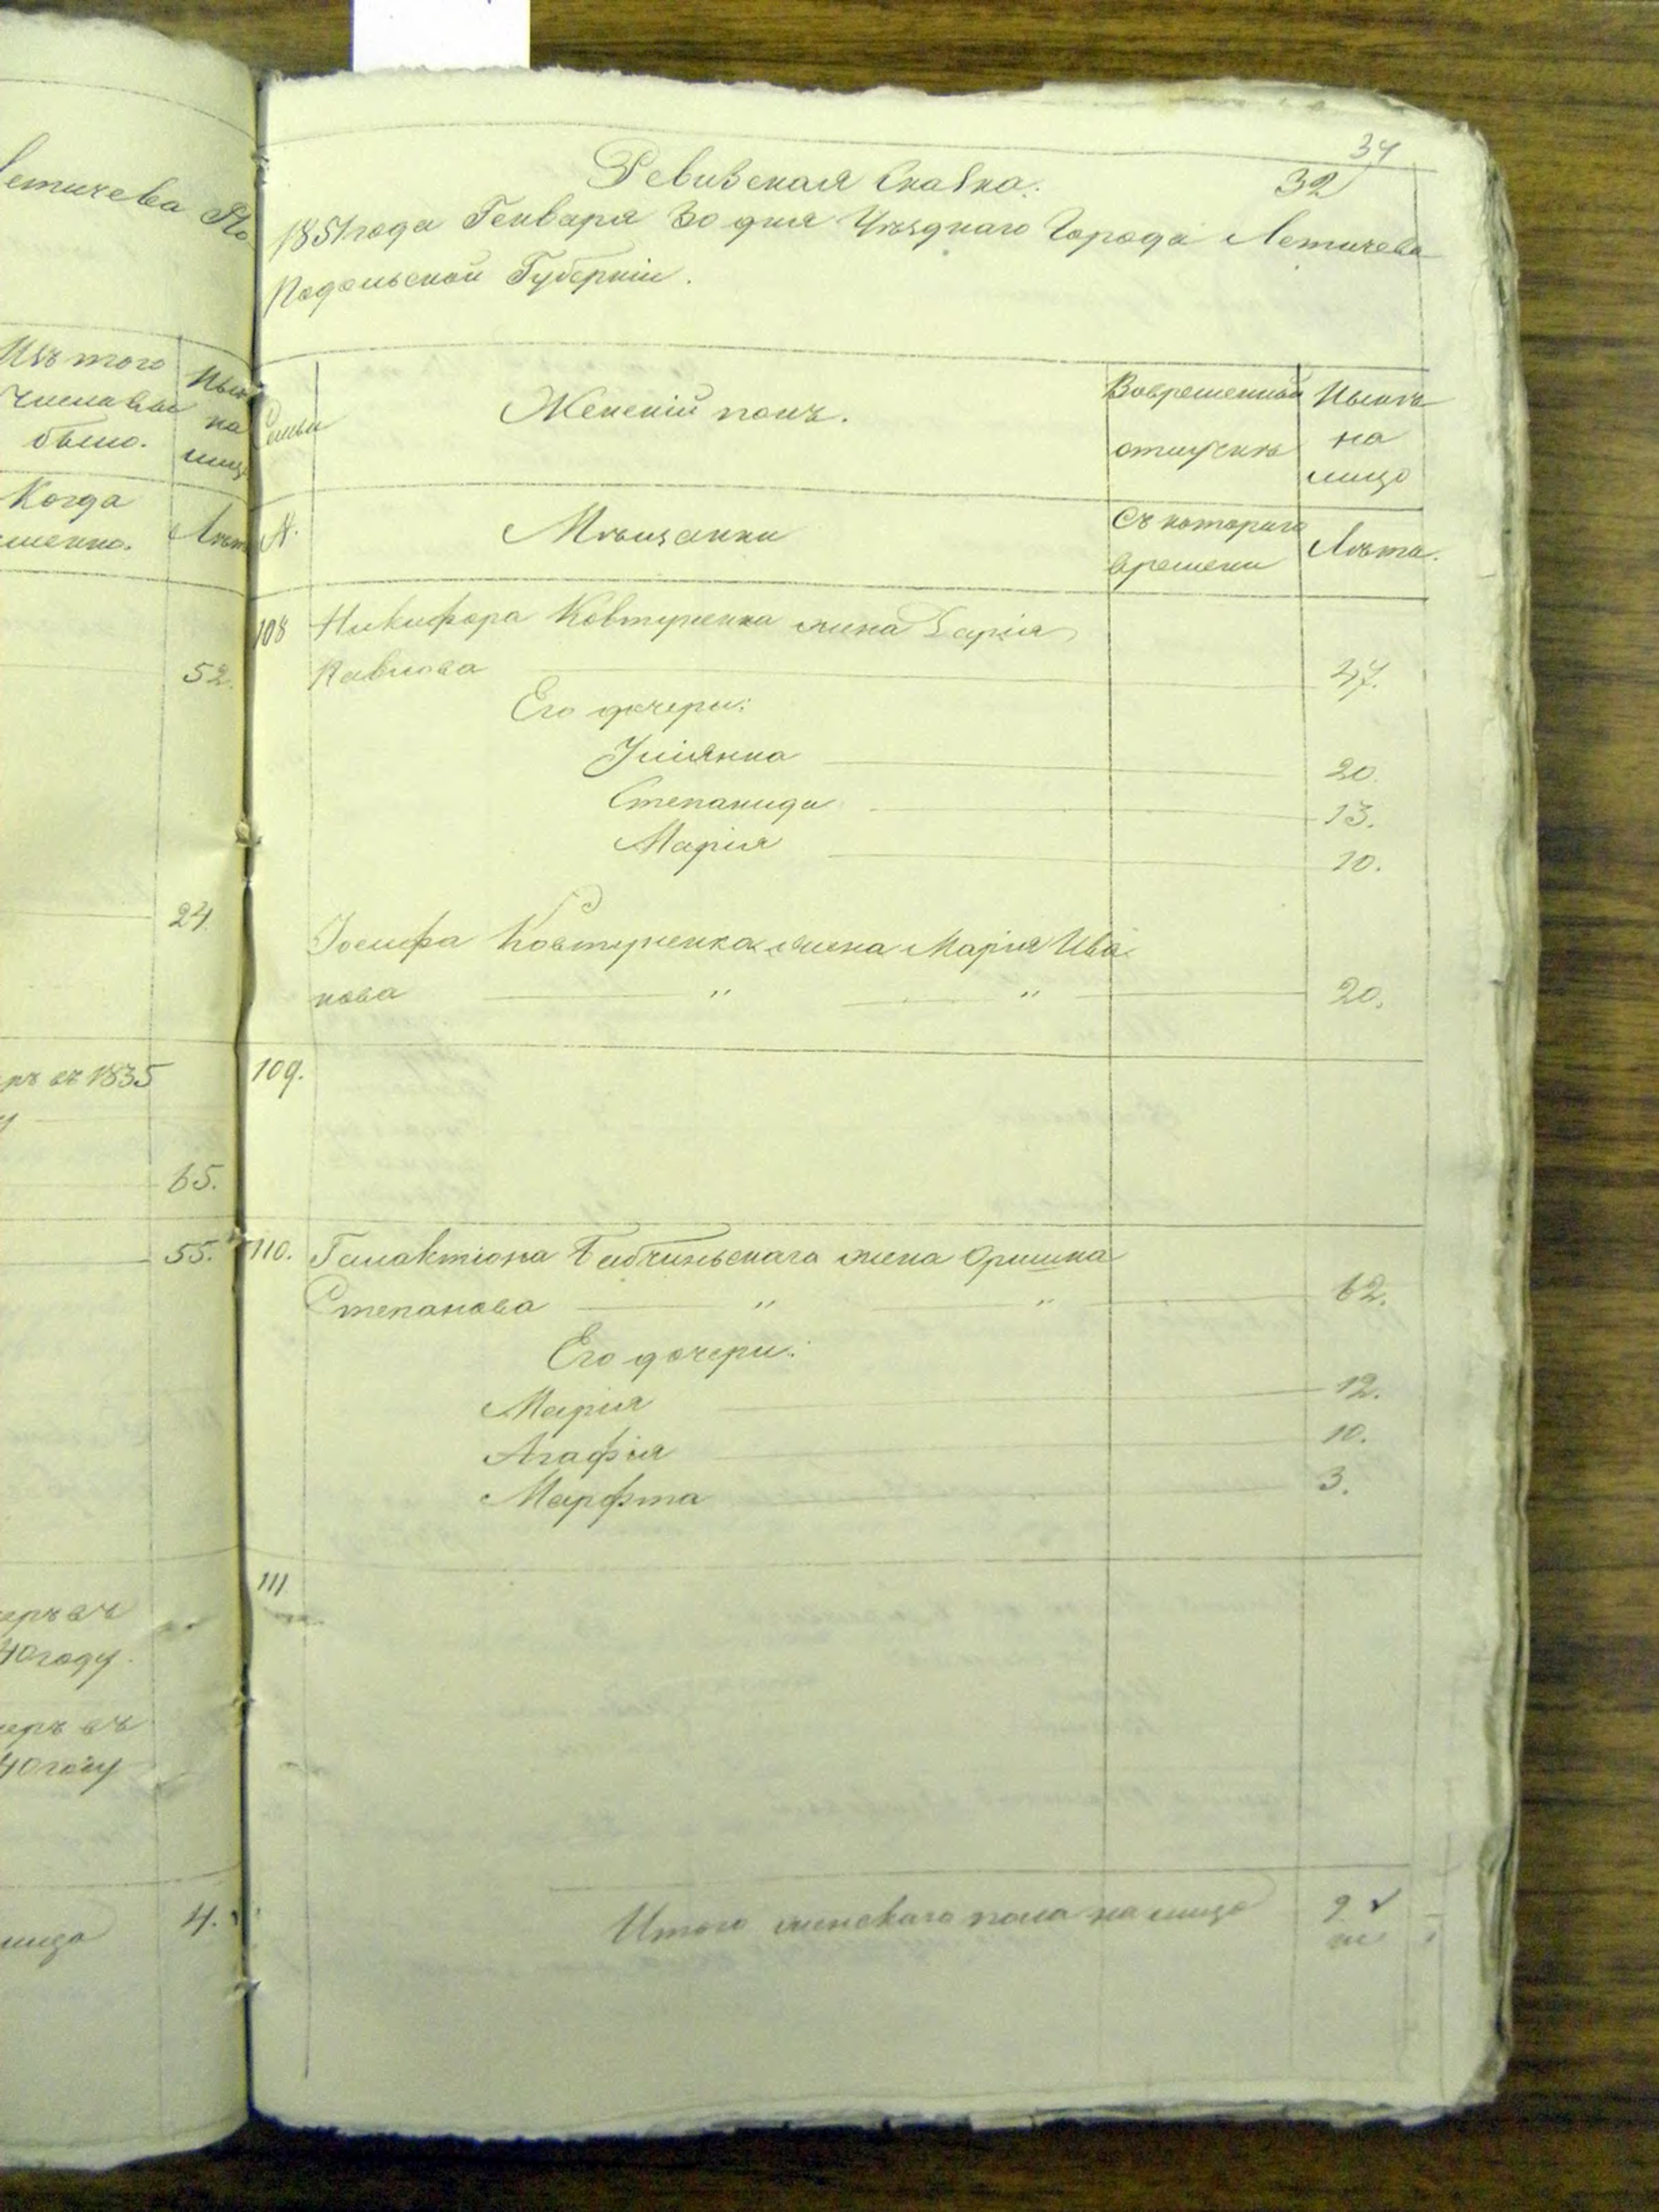 Летичева По
Изъ того
числа вы
было.
Когда
Лѣт
52.
24.
65.
55.
40 году.
40 году
4.
34
32
Ревизская Сказка.
1851 года Генваря 30 дня Уѣзднаго Города Летичева
Подольской Губерніи.
Семьи
Женскій полъ.
Вовременной
отлучкѣ
Нынѣ
на
лицо
N.
Мѣщанки
Съ котораго
времени
Лѣта.
108 Никифора Ковтуненка жена Дарія
Павлова 47.
Его дочери:
Уліянна 20.
Степанида 13.
Марія 10.
Іосифа Ковтуненка жена Марія Ива
нова " " 20.
109.
110. Галактіона Бабчиньскаго жена Оришка
Степанова " " 62.
Его дочери:
Марія 12.
Агафія 10.
Марфта 3.
111
Итого женскаго пола на лицо 9